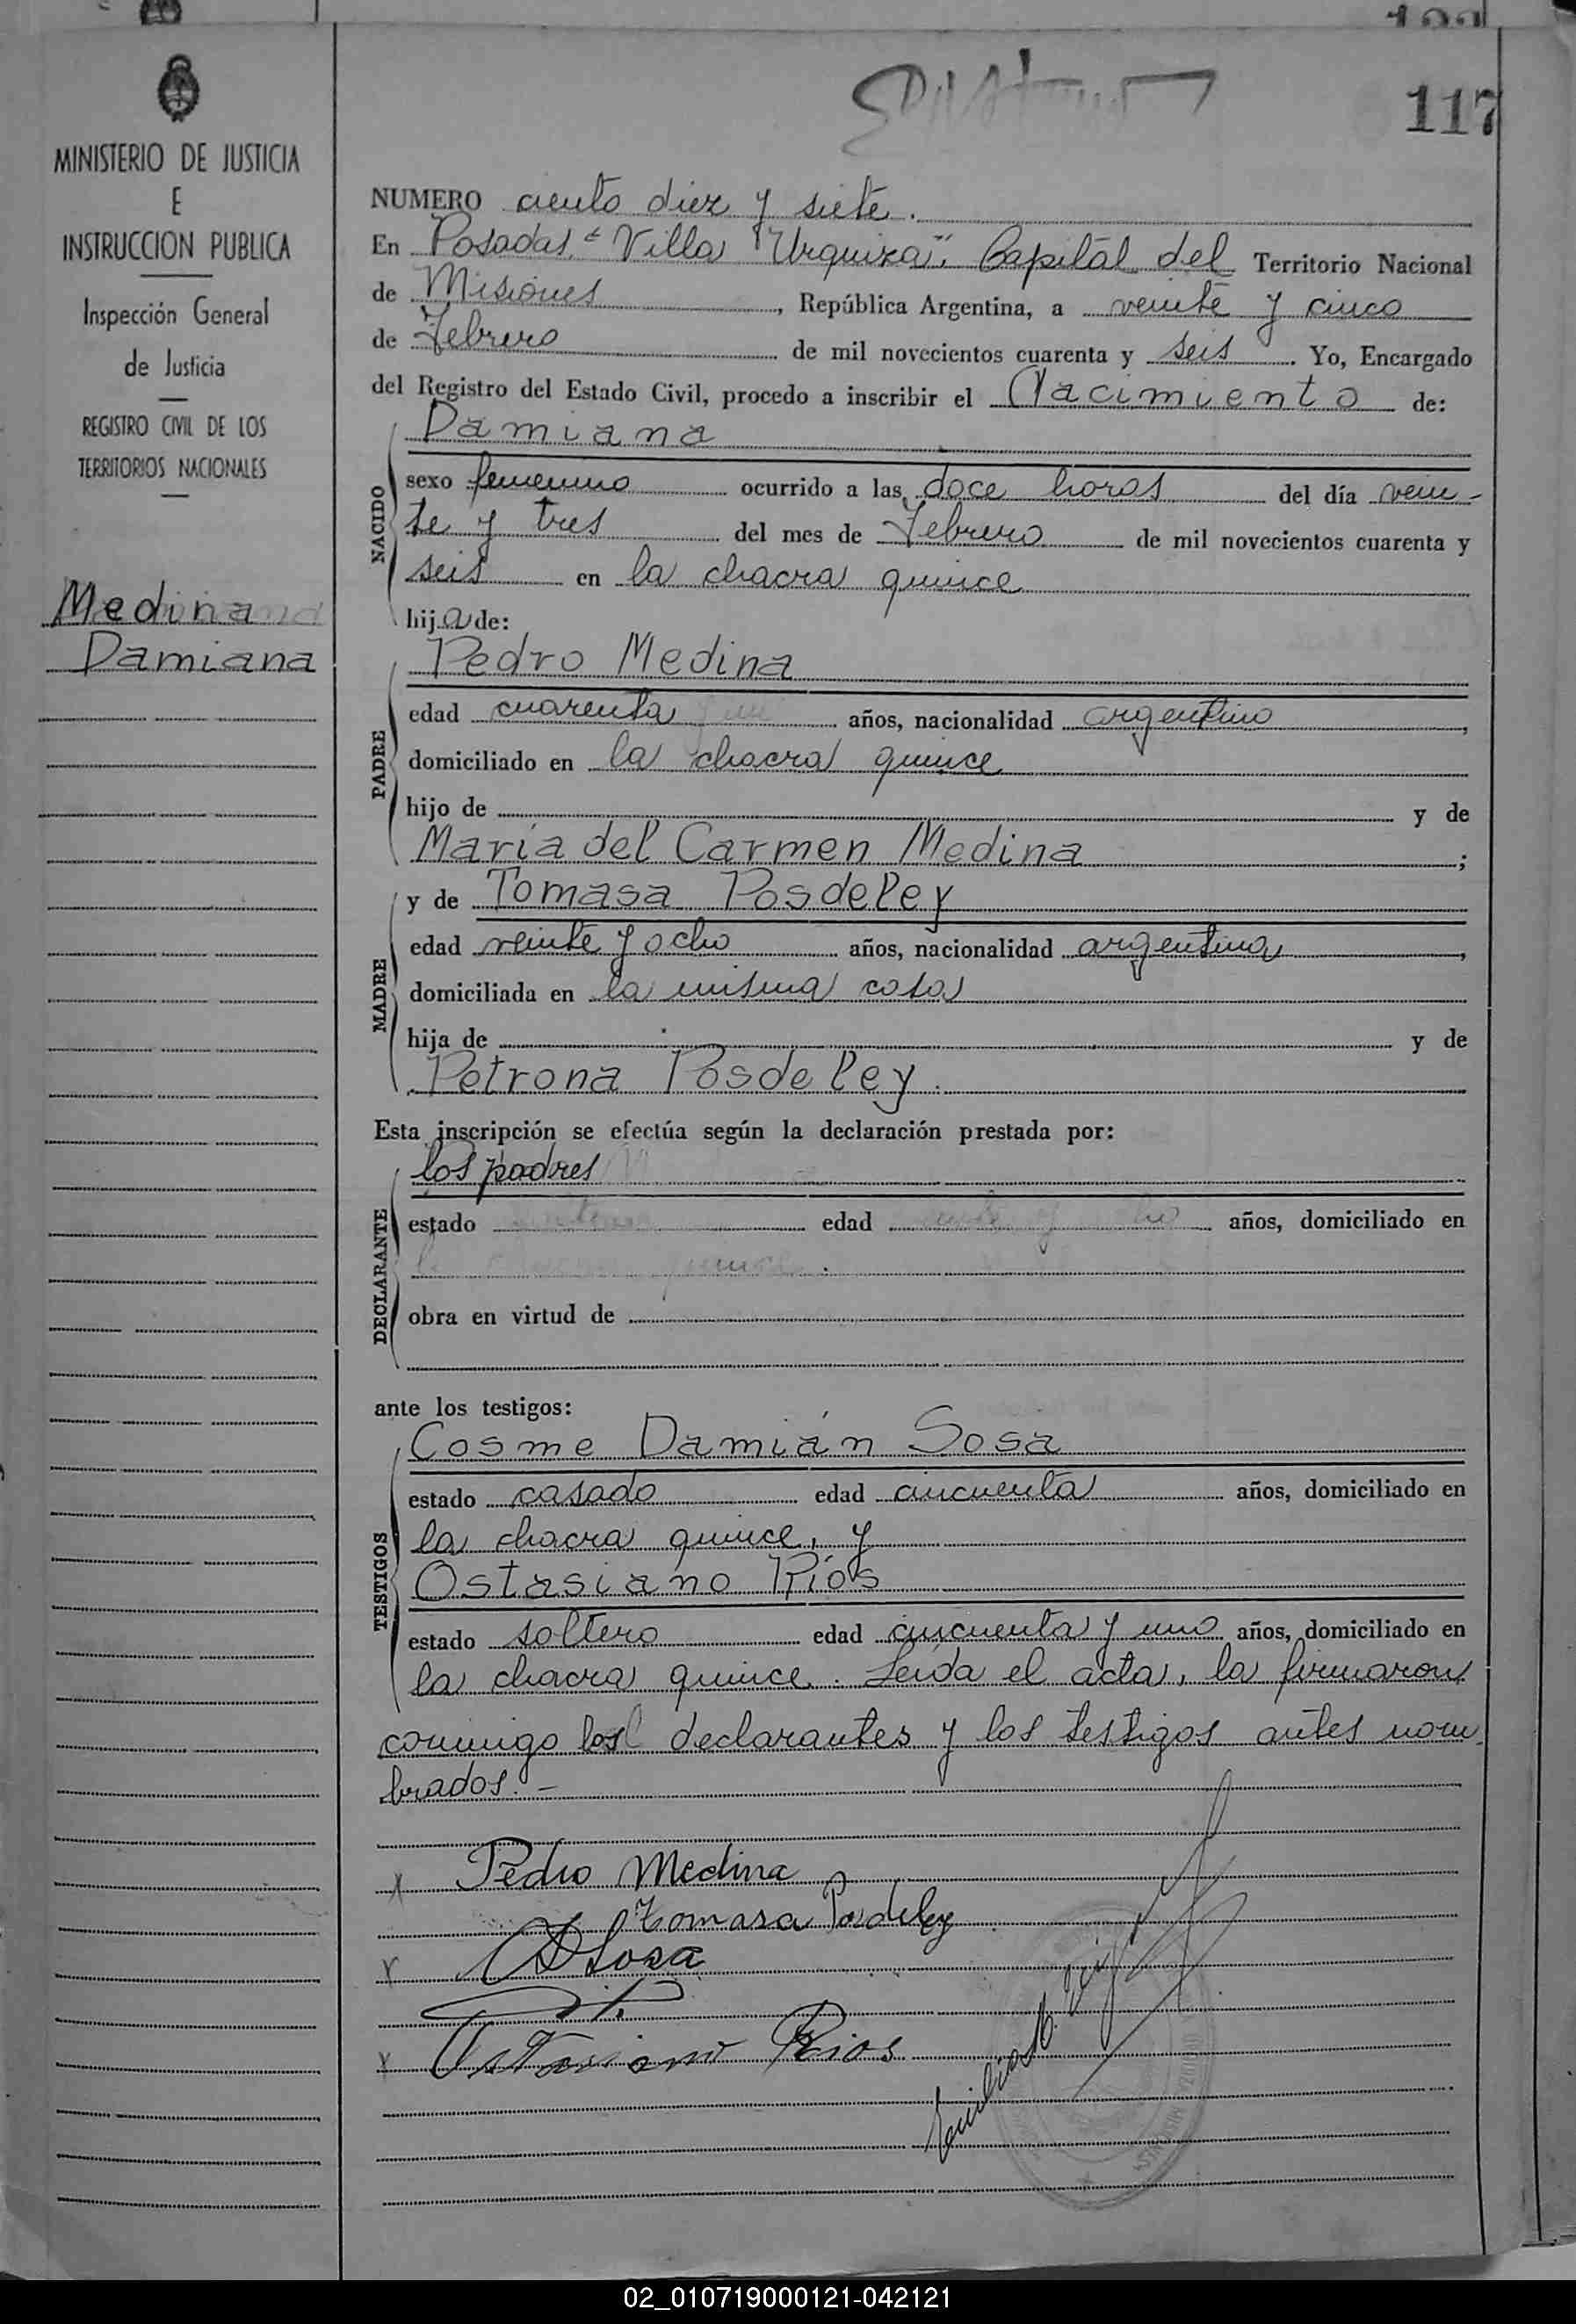 117
MINISTERIO DE JUSTICIA
E
INSTRUCCION PUBLICA
Inspección General
de Justicia
REGISTRO CIVIL DE LOS
TERRITORIOS NACIONALES
Medina
Damiana
NUMERO ciento diez y siete.
En Posadas "Villa Urquiza", Capital del Territorio Nacional
de Misiones, República Argentina, a veinte y cinco
de Febrero de mil novecientos cuarenta y seis. Yo, Encargado
del Registro del Estado Civil, procedo a inscribir el Nacimiento de:
Damiana
NACIDO
sexo femenino ocurrido a las doce horas del día vein-
te y tres del mes de Febrero de mil novecientos cuarenta y
seis en la chacra quince
hija de:
Pedro Medina
PADRE
edad cuarenta años, nacionalidad argentino,
domiciliado en la chacra quince
hijo de y de
María del Carmen Medina;
y de Tomasa Posdeley
MADRE
edad veinte y ocho años, nacionalidad argentina,
domiciliada en la misma casa
hija de y de
Petrona Posdeley.
Esta inscripción se efectúa según la declaración prestada por:
los padres
DECLARANTE
estado edad años, domiciliado en
obra en virtud de
ante los testigos:
Cosme Damián Sosa
TESTIGOS
estado casado edad cincuenta años, domiciliado en
la chacra quince, y
Ostasiano Ríos
estado soltero edad cincuenta y uno años, domiciliado en
la chacra quince. Leída el acta, la firmaron
conmigo los declarantes y los testigos antes nom-
brados.-
Pedro Medina
Tomasa Posdeley
CDSosa
Ostasiano Rios
02_010719000121-042121